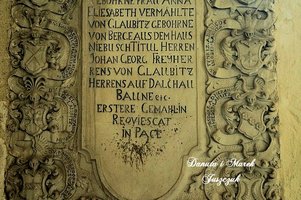 GEBOHRNE FRAU ANNA
ELIESABETH VERMÄHLTE
VON GLAUBITZ GEBOHRNE
VON BERGE AUS DEM HAUS
NIEBUSCH TITUL HERREN
JOHAN GEORG FREYHER
RENS VON GLAUBITZ
HERRENS AUF DALCHAU
BAUNE etc.
ERSTERE GEMAHLIN
REQVIESCAT
IN PACE
Danuta i Marek
Juszczak